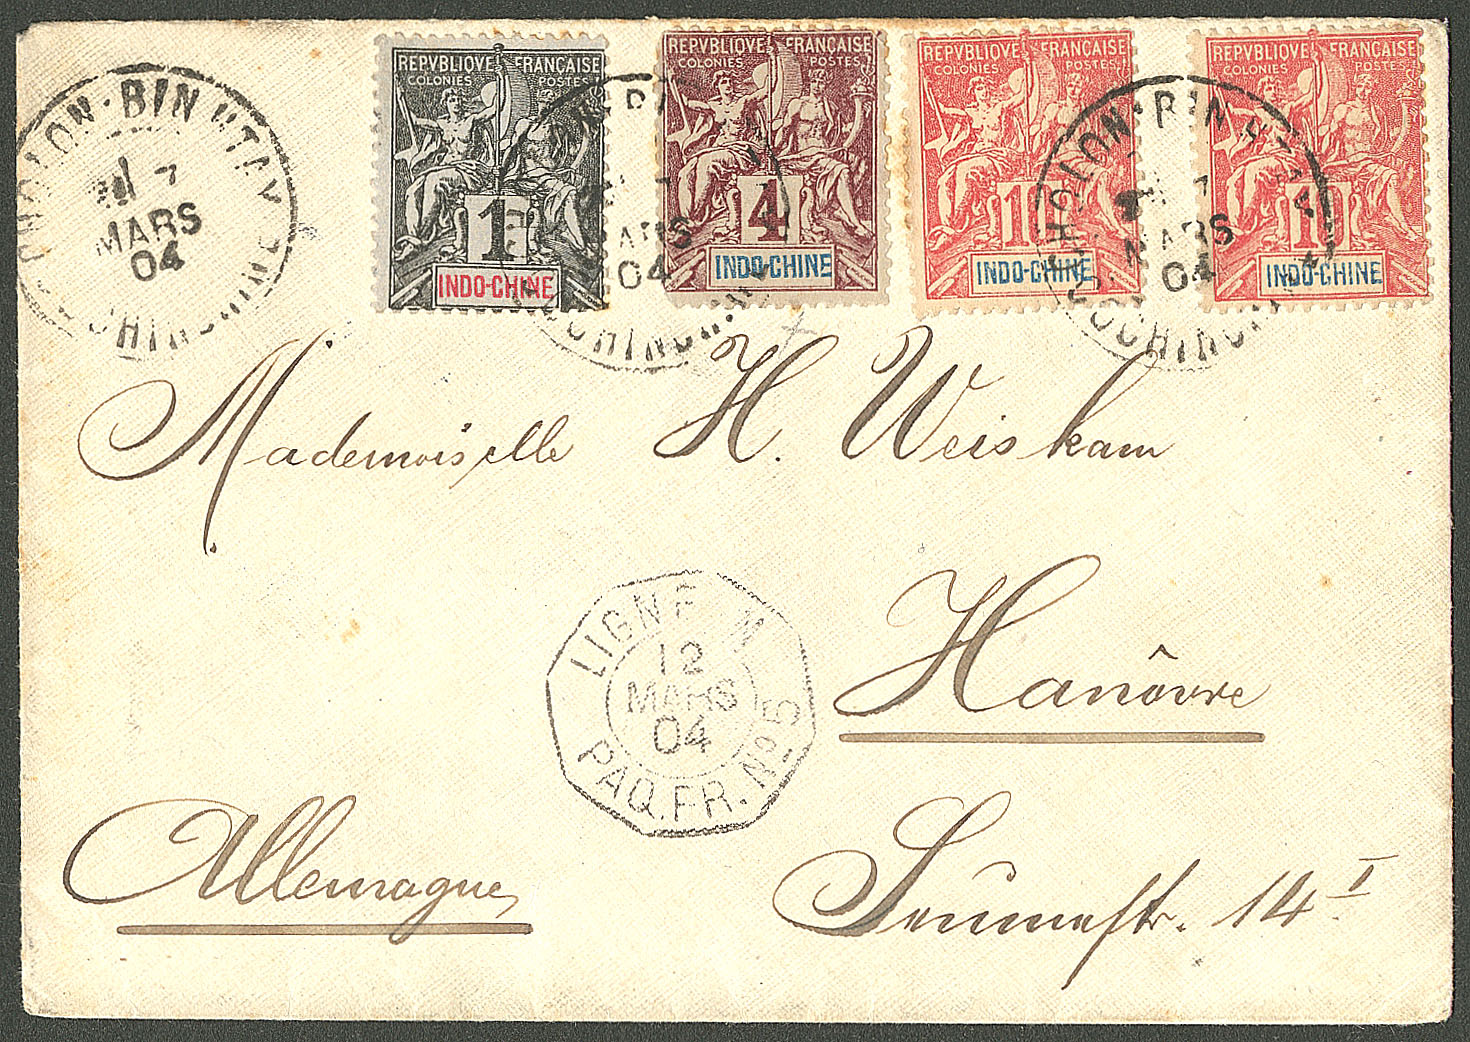 CHOLON·BINHTAY
7
MARS
04
COCHINCHINE
REPVBLIQVE FRANÇAISE
COLONIES POSTES
1
INDO-CHINE
REPVBLIQVE FRANÇAISE
COLONIES POSTES
4
INDO-CHINE
REPVBLIQVE FRANÇAISE
COLONIES POSTES
10
INDO-CHINE
REPVBLIQVE FRANÇAISE
COLONIES POSTES
10
INDO-CHINE
MARS
04
COCHINCHINE
CHOLON·BINHTAY
MARS
04
COCHINCHINE
Mademoiselle H. Weiskam
LIGNE N
12
MARS
04
PAQ. FR. No 5
Hanôvre
Allemagne
14 I